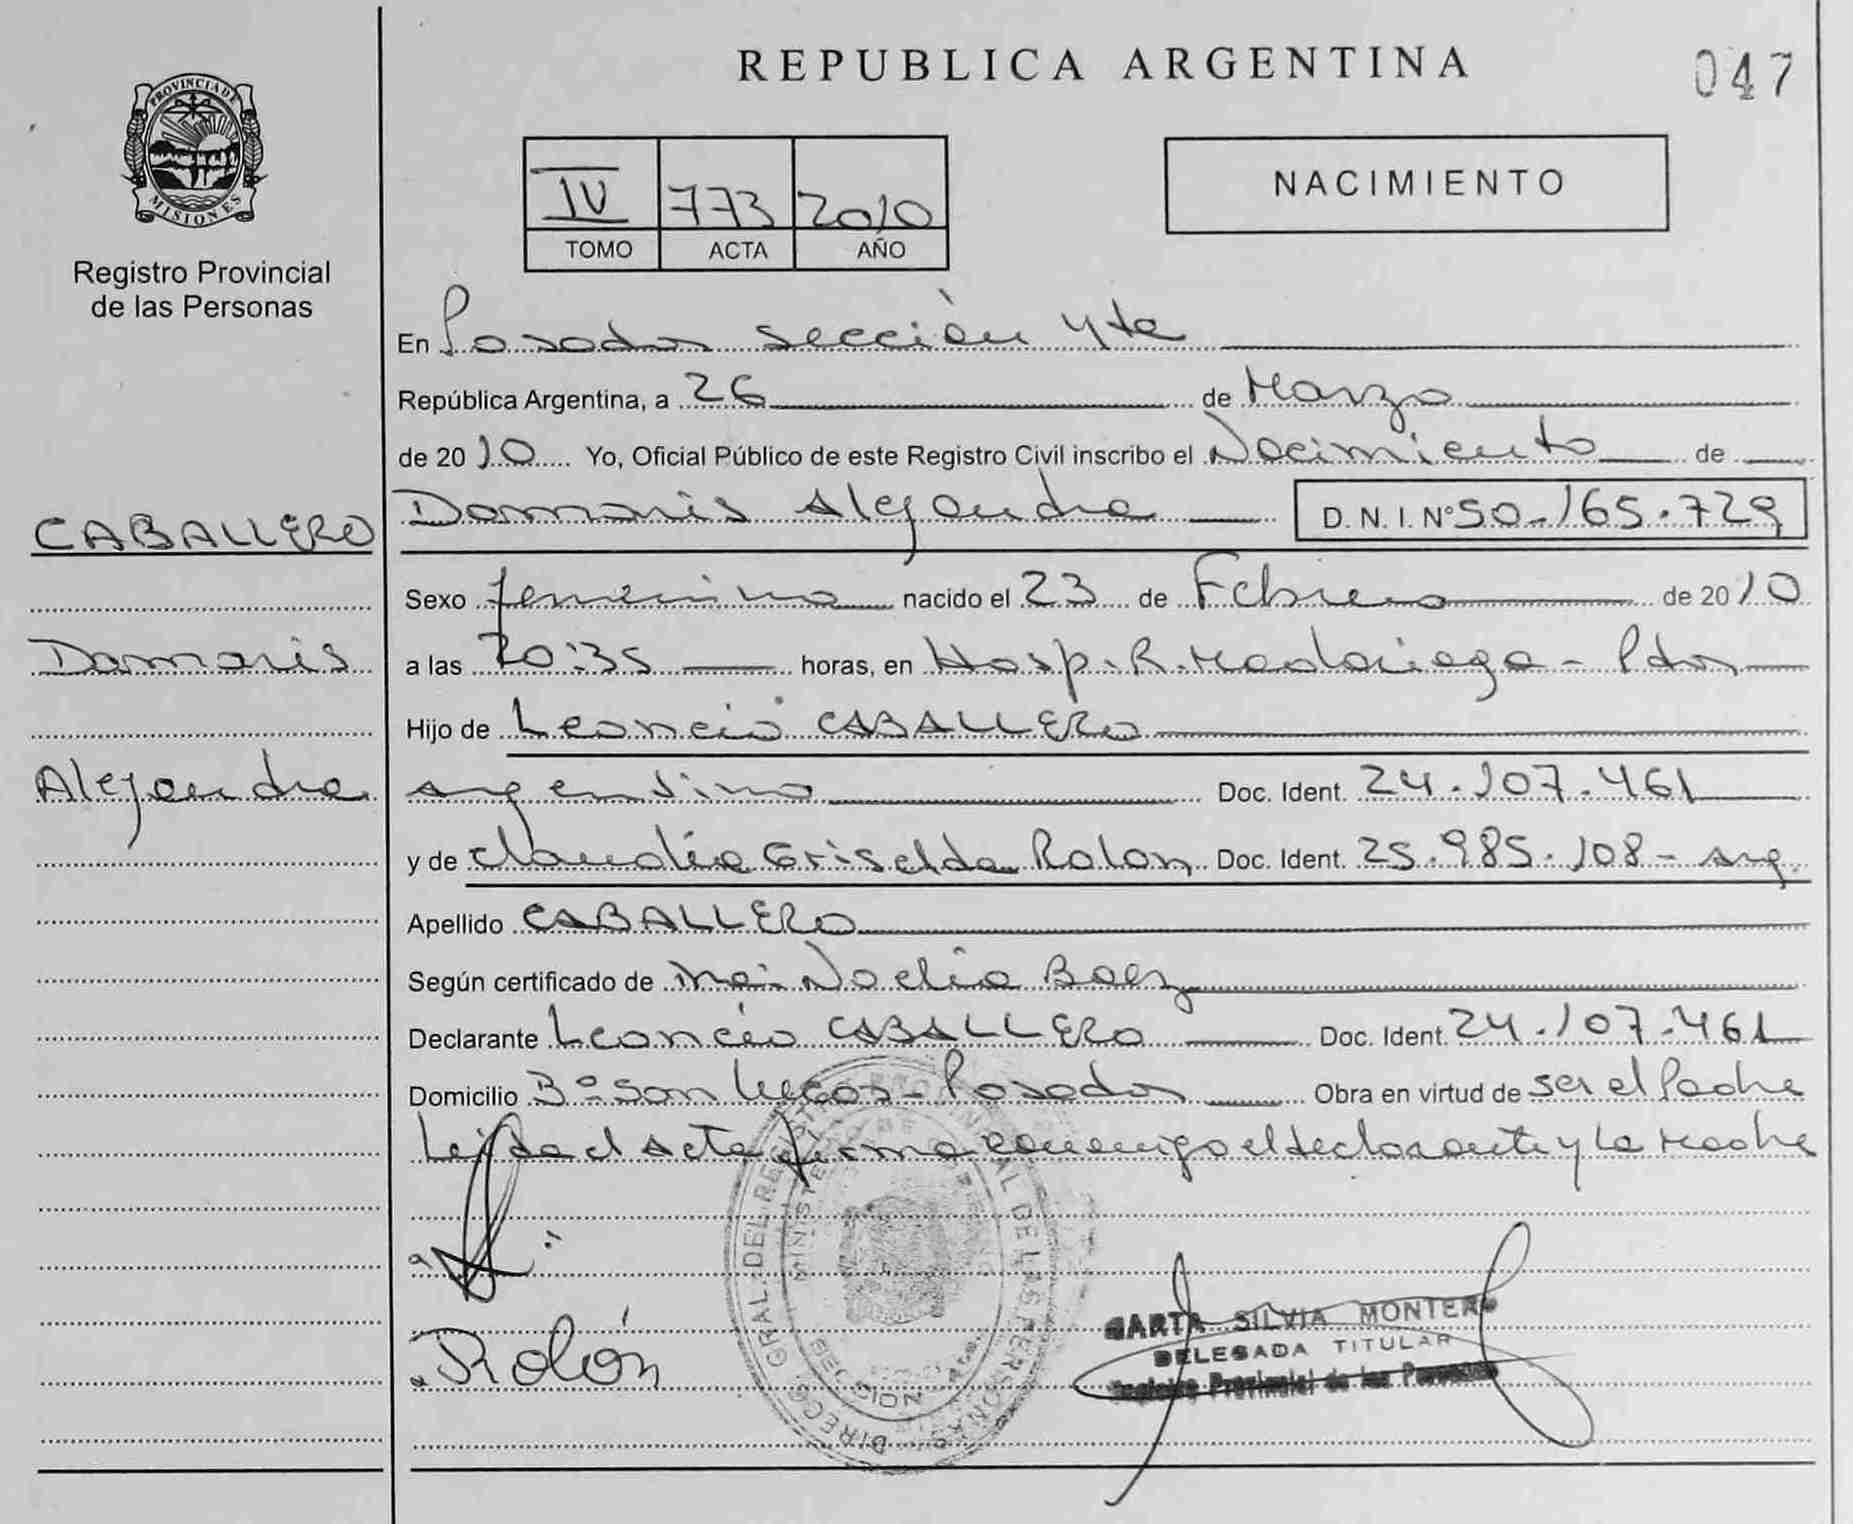 REPUBLICA ARGENTINA
047
PROVINCIA DE MISIONES
Registro Provincial
de las Personas
IV 773 2010
TOMO ACTA AÑO
NACIMIENTO
En Posadas sección 4ta
República Argentina, a 26 de Marzo
de 2010 Yo, Oficial Público de este Registro Civil inscribo el Nacimiento de
CABALLERO
Damaris Alejandra D.N.I. Nº 50.165.729
Sexo femenino nacido el 23 de Febrero de 2010
Damaris
a las 20:35 horas, en Hosp. R. Madariaga - Pdas
Hijo de Leoncio CABALLERO
Alejandra
argentino Doc. Ident. 24.107.461
y de Claudia Griselda Rolon Doc. Ident. 25.985.108 - arg.
Apellido CABALLERO
Según certificado de Ma. Noelia Baez
Declarante Leoncio CABALLERO Doc. Ident. 24.107.461
Domicilio Bº San Lucas - Posadas Obra en virtud de ser el Padre
Leída el Acta firma conmigo el declarante y la Madre
Rolón
MARTA SILVIA MONTERO
DELEGADA TITULAR
Registro Provincial de las Personas